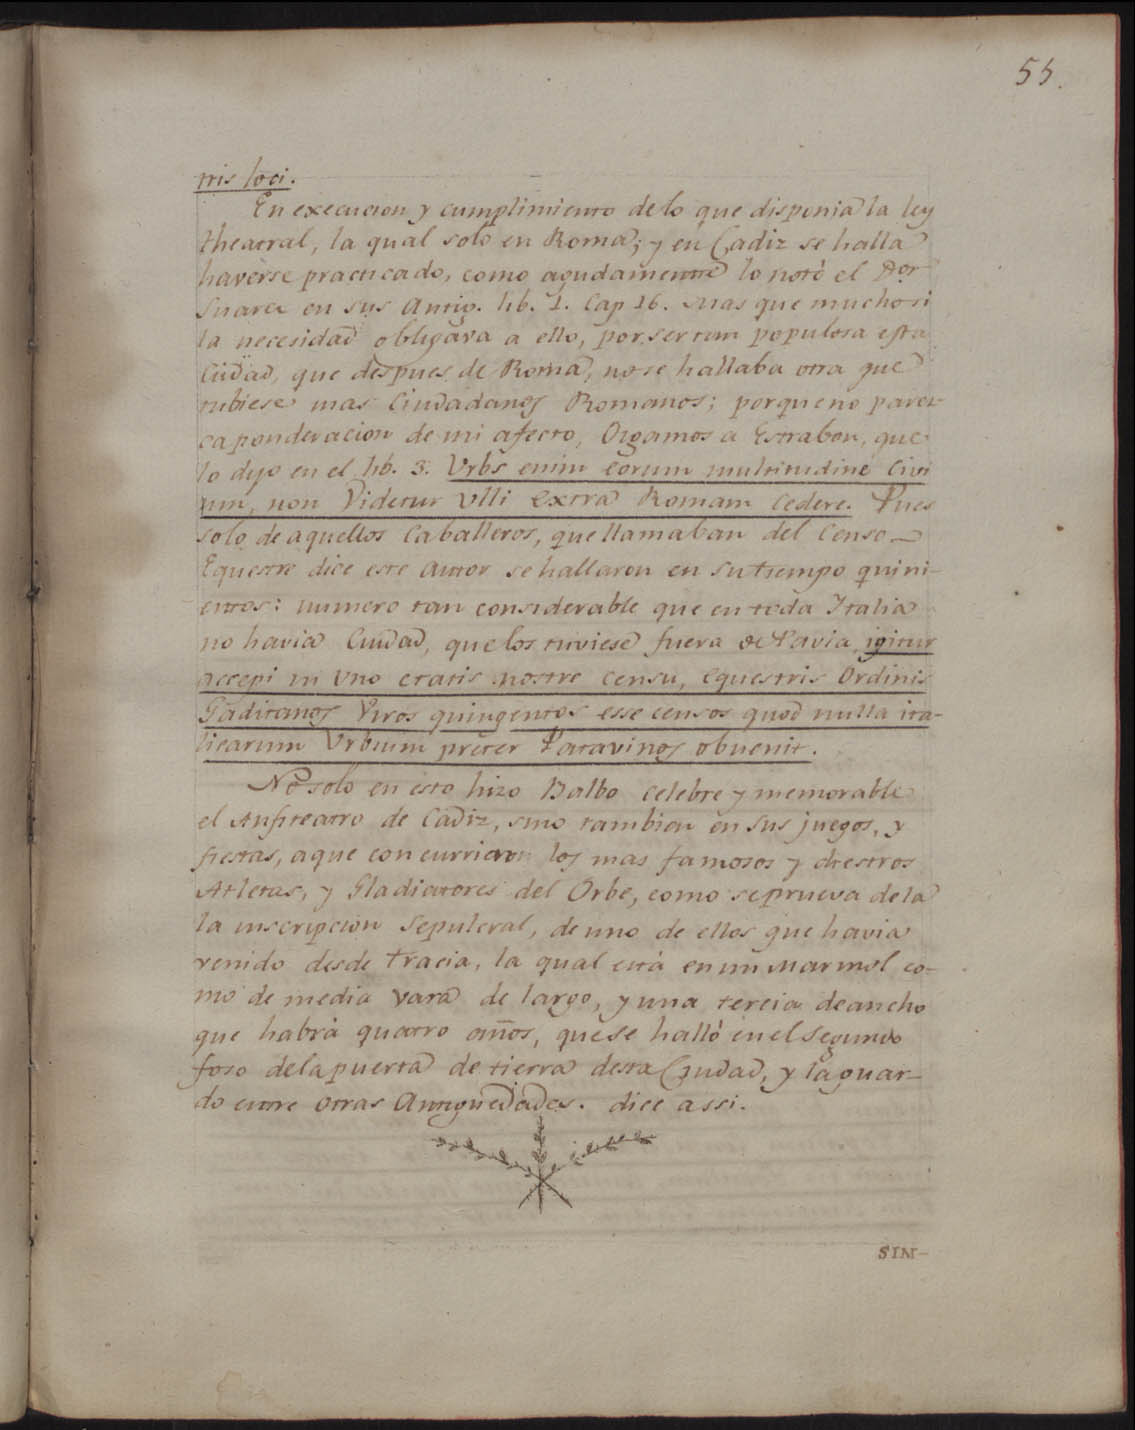 55.
pris loci.
En execucion y cumplimiento de lo que disponia la ley
theatral, la qual solo en Roma; y en Cadiz se halla
haverse practicado, como agudamente lo notò el Dor
Suarez en sus Antig. lib. 1. Cap 16. Mas que mucho si
la necesidad obligava a ello, por ser tan populosa esta
Ciudad, que despues de Roma, no se hallaba otra que
tubiese mas Ciudadanos Romanos; porque no parez-
ca ponderacion de mi afecto, Oigamos a Estrabon, que
lo dijo en el lib. 3. Vrbs enim eorum multitudine Civi
um, non Videtur Vlli extra Romam Cedere. Pues
solo de aquellos Caballeros, que llamaban del Censo
Equestre dice este autor se hallaron en su tiempo quini-
entos: numero tan considerable que en toda Italia
no havia Ciudad, que los tuviese fuera de Pavia, igitur
accepi in Vno etatis nostre censu, equestris Ordinis
Gaditanos Viros quingentos esse censos quod nulla ita-
licarum Vrbium preter Patavinos obuenit.
No solo en esto hizo Balbo celebre y memorable
el Anfiteatro de Cadiz, sino tambien en sus juegos, y
fiestas, a que concurrieron los mas famosos y diestros
Atletas, y Gladiatores del Orbe, como se prueva de la
la inscripcion Sepulcral, de uno de ellos que havia
venido desde tracia, la qual está en un Marmol co-
mo de media vara de largo, y una tercia de ancho
que habrà quatro años, que se hallò en el segundo
foso de la puerta de tierra desta Ciudad, y la guar-
do entre otras Antiguedades. dice assi.
SIN-